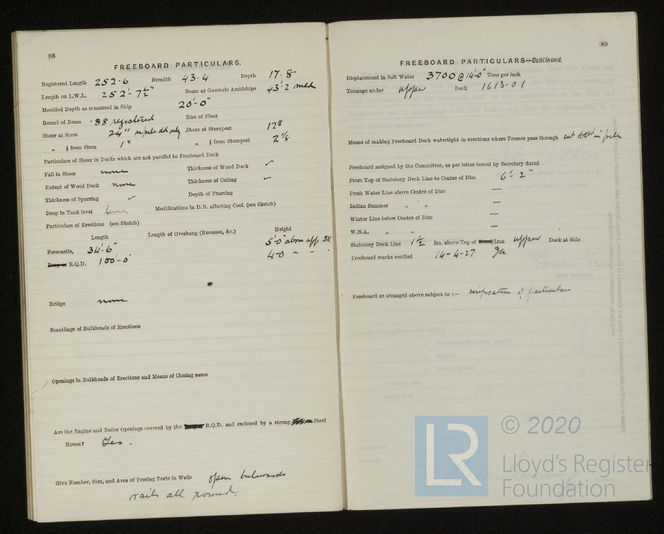 88
FREEBOARD PARTICULARS.
Registered Length 252.6 Breadth 43.4 Depth 17.8
Length on L.W.L. 252'-7½" Beam at Gunwale Amidships 43'.2 mld
Moulded Depth as measured in Ship 20'-0"
Round of Beam .88 registered Rise of Floor
Sheer at Stem 24" Sheer at Sternpost
" ⅛ from Stem 1" " ⅛ from Sternpost 2⅛
Particulars of Sheer in Decks which are not parallel to Freeboard Deck
Fall in Sheer none Thickness of Wood Deck ✓
Extent of Wood Deck none Thickness of Ceiling ✓
Thickness of Sparring ✓ Depth of Framing
Drop in Tank level Modifications in D.B. affecting Coef. (see Sketch)
Particulars of Erections (see Sketch)
Length Length of Overhang (Recesses, &c.) Height
Forecastle, 34'-6" 5'-0" above upp Dk
R.Q.D. 100'-0" 4-0 " "
Bridge none
Scantlings of Bulkheads of Erections
Openings in Bulkheads of Erections and Means of Closing same
Are the Engine and Boiler Openings covered by the R.Q.D. and enclosed by a strong Steel
House? Yes.
Give Number, Size, and Area of Freeing Ports in Wells open bulwards
rails all round.
89
FREEBOARD PARTICULARS—Continued.
Displacement in Salt Water 3700 @ 14'-0" Tons per inch
Tonnage under upper Deck 1613.01
Means of making Freeboard Deck watertight in erections where Frames pass through
Freeboard assigned by the Committee, as per letter issued by Secretary dated
From Top of Statutory Deck Line to Centre of Disc 6'-2"
Fresh Water Line above Centre of Disc —
Indian Summer " " —
Winter Line below Centre of Disc —
W.N.A. " " —
Statutory Deck Line 1½ Ins. above Top of Iron upper Deck at Side
Freeboard marks verified 14-4-27
Freeboard as arranged above subject to :— verification of particulars
LR
© 2020
Lloyd's Register
Foundation